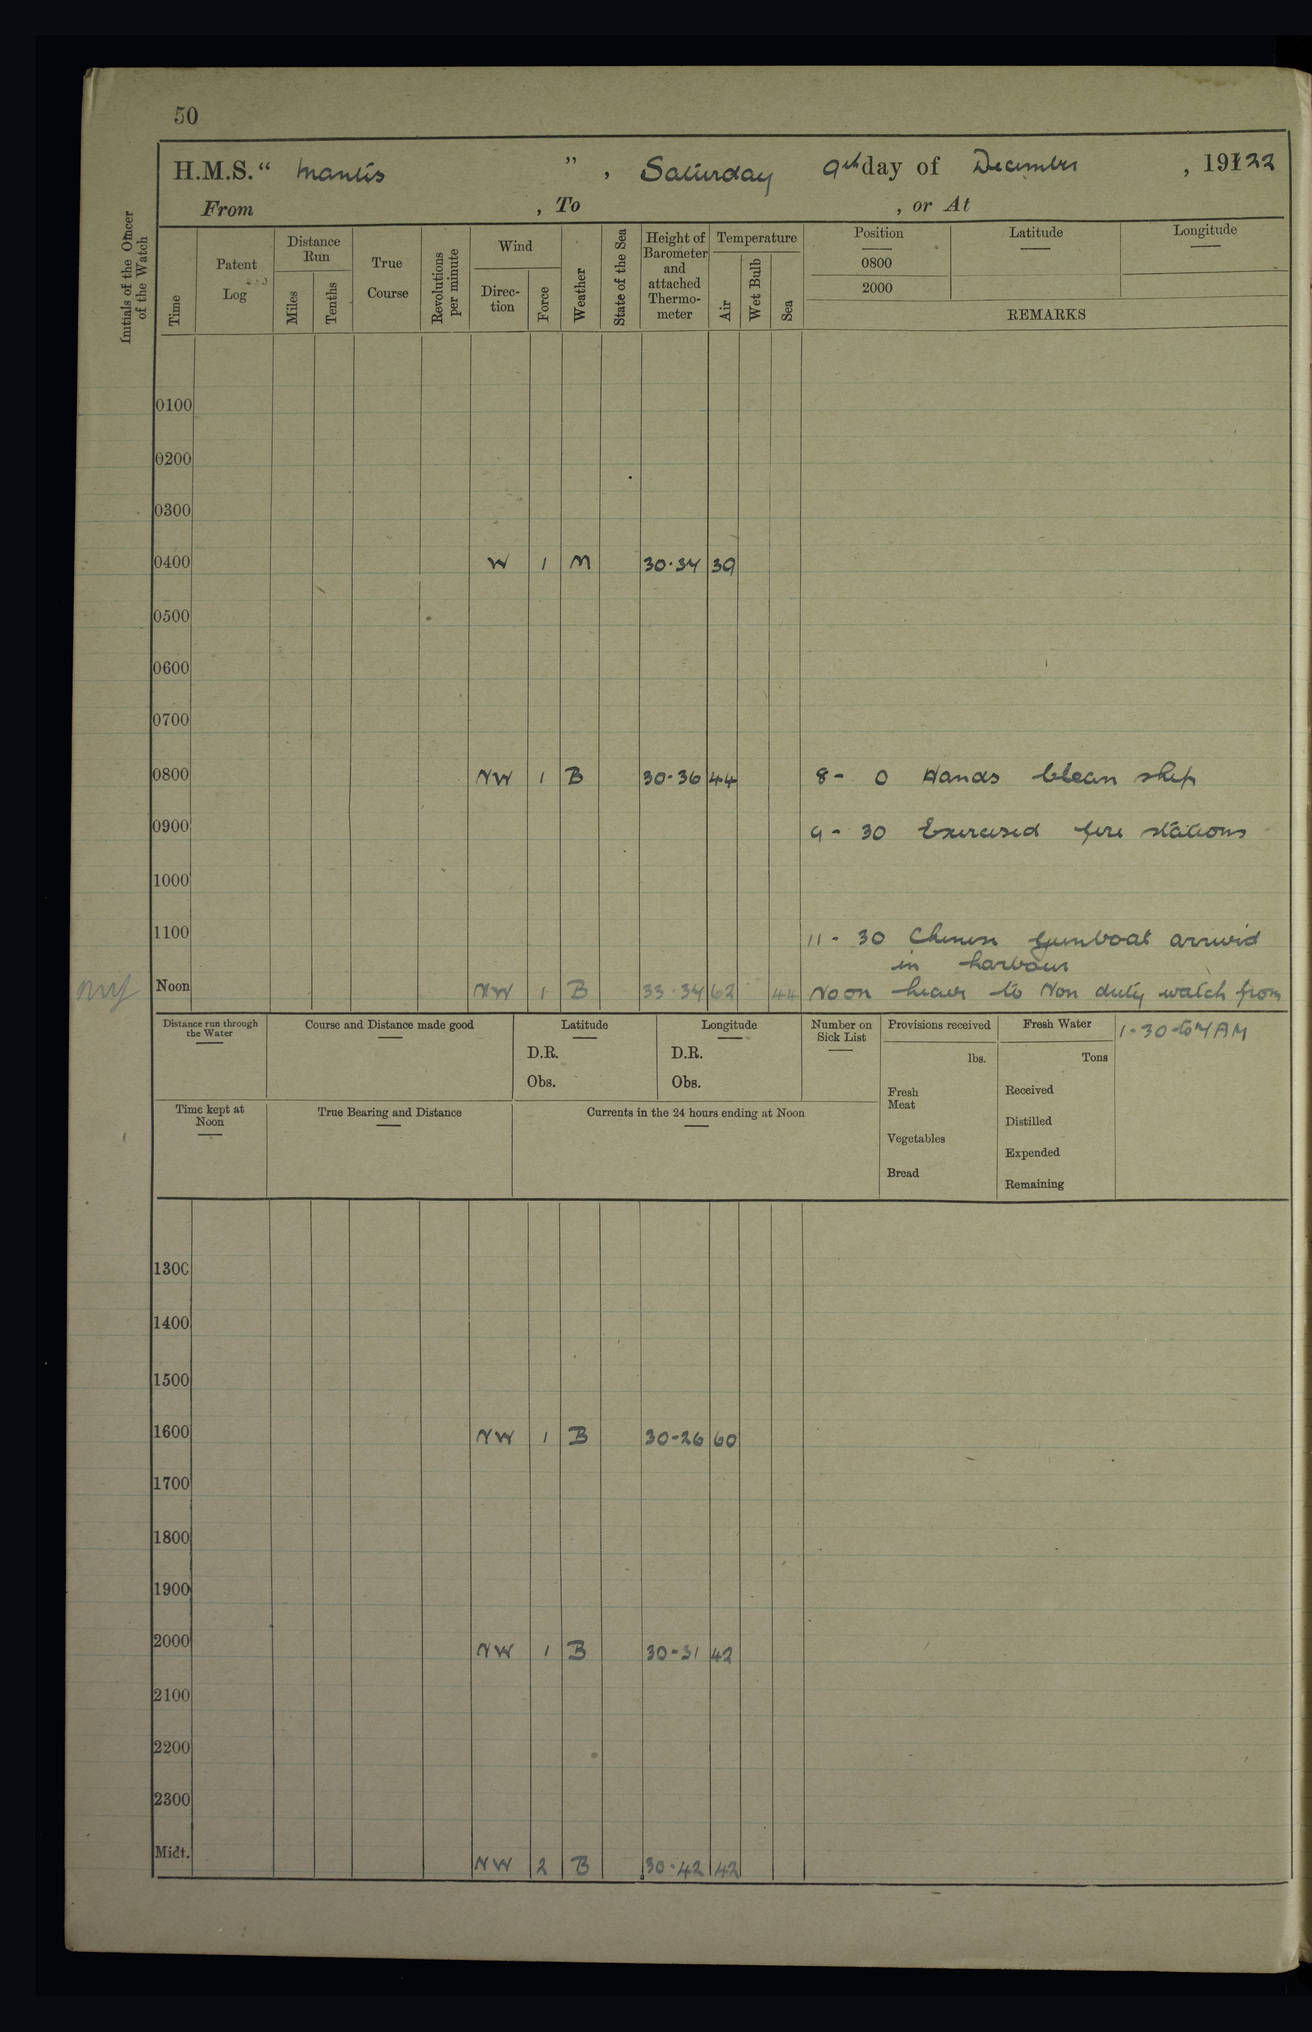 50
H.M.S. “ Mantis ”, Saturday 9th day of December, 19122
From , To , or At
Initials of the Officer of the Watch
Time
Patent Log
Distance Run
Miles
Tenths
True Course
Revolutions per minute
Wind
Direc-tion
Force
Weather
State of the Sea
Height of Barometer and attached Thermo-meter
Temperature
Air
Wet Bulb
Sea
Position
0800
2000
Latitude
Longitude
REMARKS
0100
0200
0300
0400 W 1 M 30·34 39
0500
0600
0700
0800 NW 1 B 30-36 44 8- 0 Hands Clean ship
0900 9- 30 Exercised fire stations
1000
1100 11- 30 Chinese Gunboat arrived
in harbour
Noon NW 1 B 33·34 62 44 Noon leave to Non duty watch from
1-30-to 7 AM
Distance run through the Water
Course and Distance made good
Latitude
D.R.
Obs.
Longitude
D.R.
Obs.
Number on Sick List
Provisions received
lbs.
Fresh Meat
Vegetables
Bread
Fresh Water
Tons
Received
Distilled
Expended
Remaining
Time kept at Noon
True Bearing and Distance
Currents in the 24 hours ending at Noon
1300
1400
1500
1600 NW 1 B 30-26 60
1700
1800
1900
2000 NW 1 B 30-31 42
2100
2200
2300
Midt. NW 2 B 30·42 42